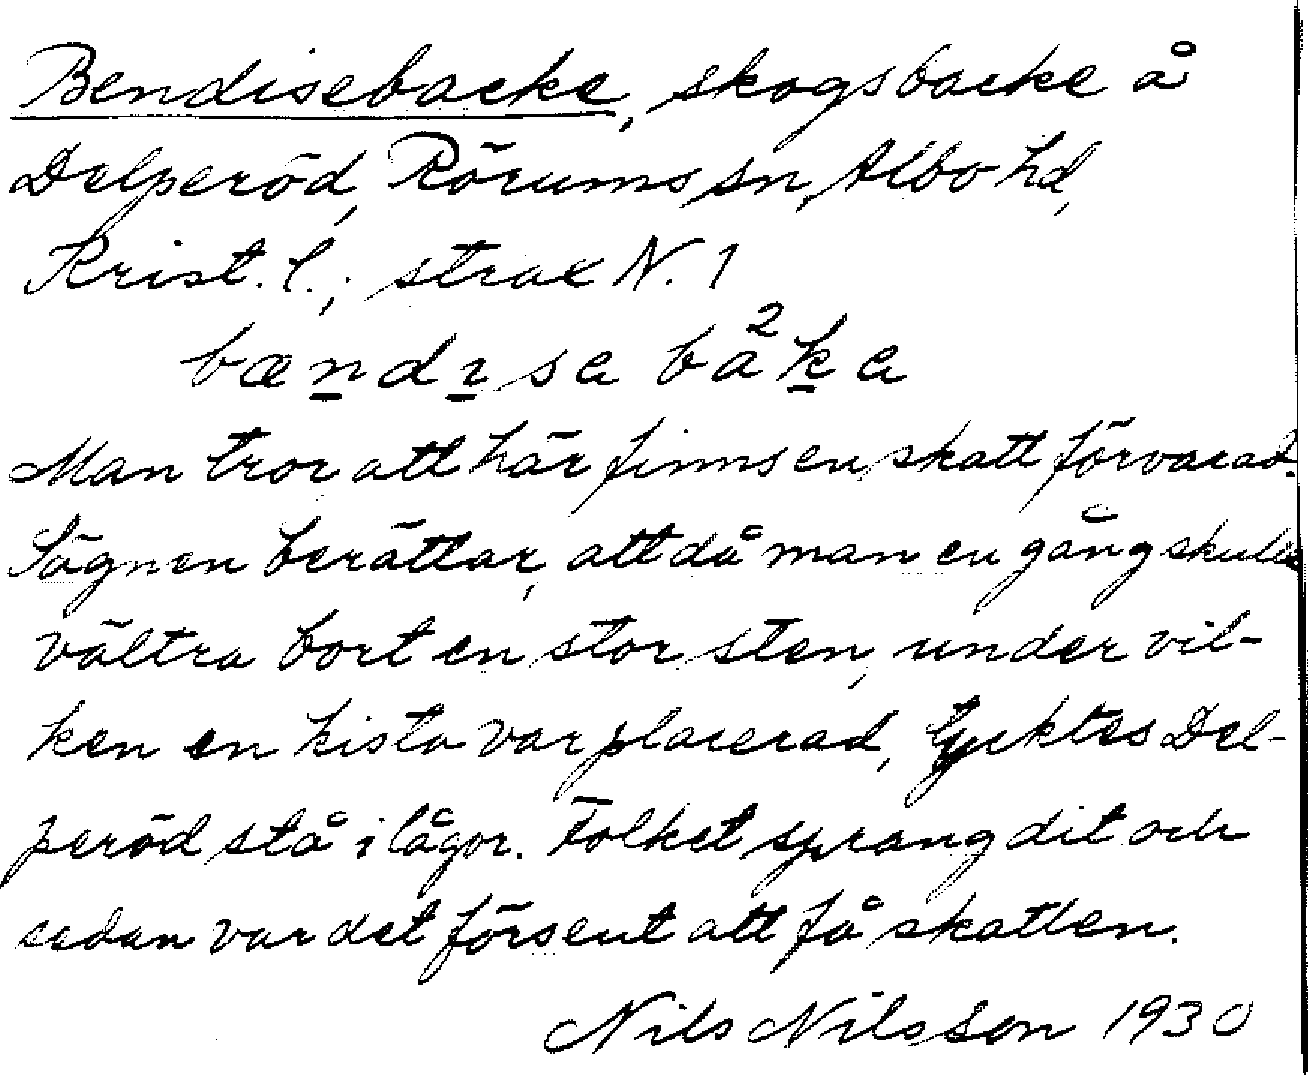 Bendisebacke, skogsbacke å
Delperöd, Rörums sn, Albo hd,
Krist. l.; strax N. 1
bændɪsa bå²ka
Man tror att här finns en skatt förvarad.
Sägnen berättar, att då man en gång skulle
vältra bort en stor sten, under vil-
ken en kista var placerad, tycktes Del-
peröd stå i lågor. Folket sprang dit och
sedan var det försent att få skatten.
Nils Nilsson 1930